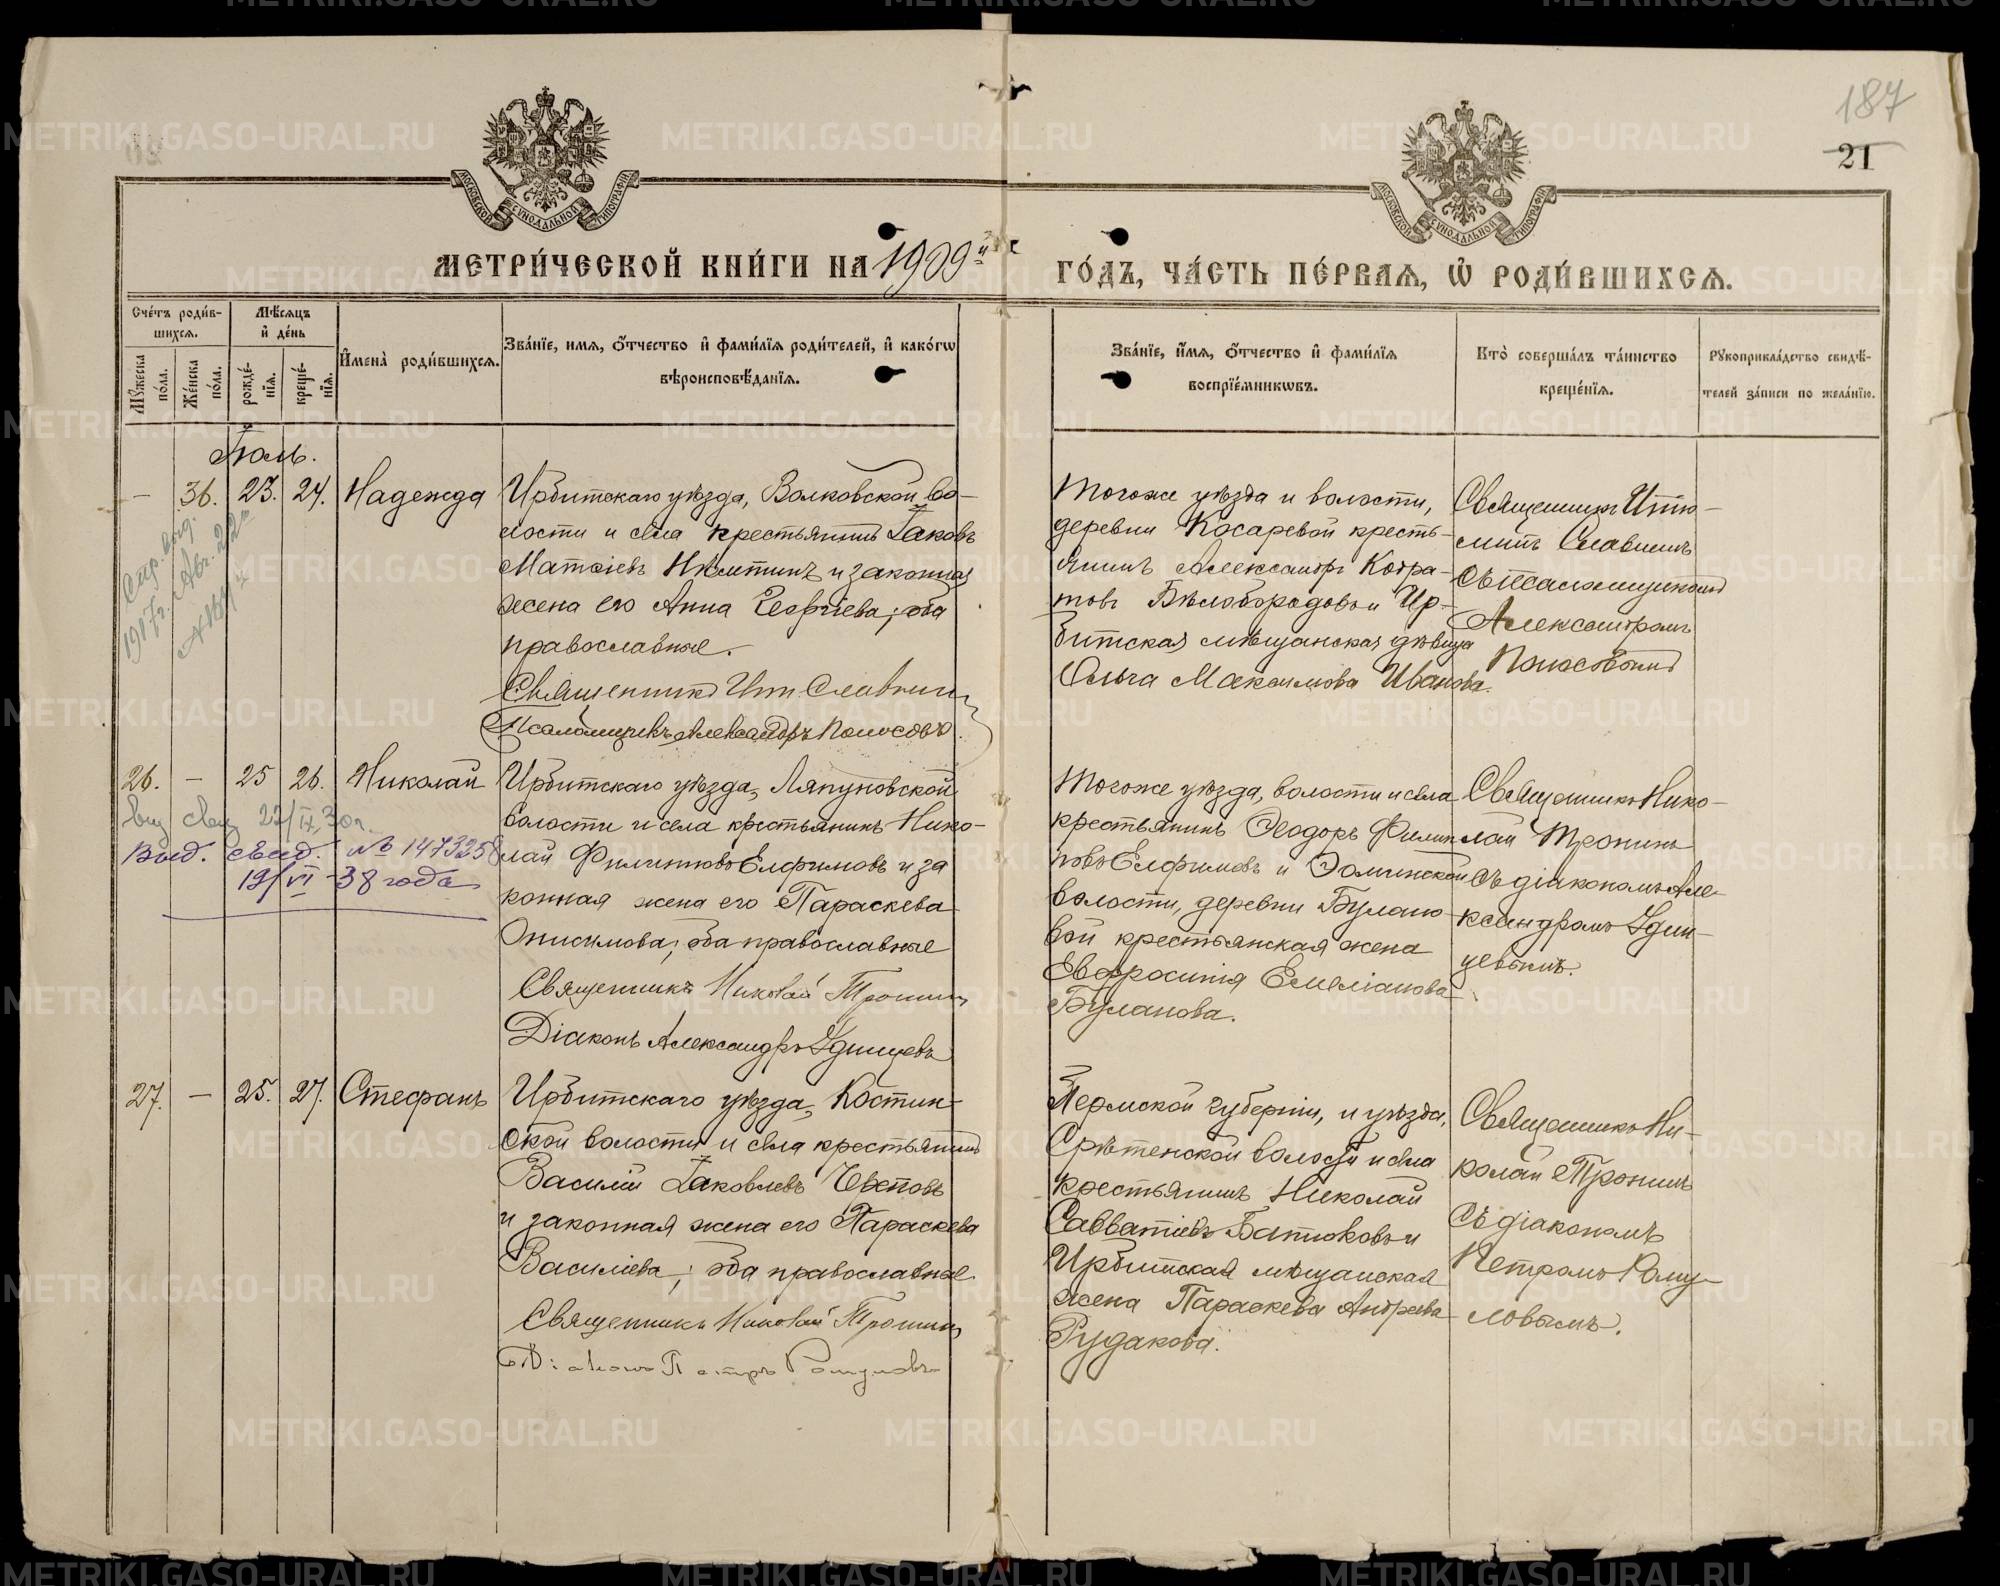 187
21
МОСКОВСКОЙ СѴНОДАЛЬНОЙ ТИПОГРАФІИ
МОСКОВСКОЙ СѴНОДАЛЬНОЙ ТИПОГРАФІИ
МЕТРИ́ЧЕСКОЙ КНИ́ГИ НА 1909й ГО́ДЪ, ЧА́СТЬ ПЕ́РВАѦ, Ѡ РОДИ́ВШИХСѦ.
Сче́тъ роди́в-
шихсѧ.
Мѣ́сѧцъ
и҆ де́нь
Мꙋ́жеска по́ла.
Же́нска по́ла.
рожде́-
нїѧ.
креще́-
нїѧ.
И҆мена̀ роди́вшихсѧ.
Зва́нїе, имѧ, ѻ҆́тчество и҆ фами́лїѧ роди́телей, и҆ како́гѡ
вѣроисповѣ́данїѧ.
Зва́нїе, и҆́мѧ, ѻ҆́тчество и҆ фами́лїѧ
воспрїе́мникѡвъ.
Кто̀ соверша́лъ та́инство
креще́нїѧ.
Рꙋкоприкла́дство свидѣ́-
телей за́писи по жела́нїю.
Іюль.
— 36. 23. 24. Надежда
Ирбитскаго уѣзда, Волковской во-
лости и села крестьянинъ Іаковъ
Матѳіевъ Никитинъ и законная
жена его Анна Георгіева; оба
православные.
Священникъ Славнин
Псаломщикъ Александръ Полосовъ.
Тогоже уѣзда и волости,
деревни Косаревой кресть-
янинъ Александръ Кодра-
товъ Бѣлобородовъ и Ир-
битская мѣщанская дѣвица
Ольга Максимова Иванова.
Священникъ
Славнинъ
съ псаломщикомъ
Александромъ
Полосовымъ
Спр. выд.
1917г. Авг. 22
26. — 25 26. Николай
Выд. свид. № 147325
19/VI-38 года
Ирбитскаго уѣзда, Ляпуновской
волости и села крестьянинъ Нико-
лай Филипповъ Елфимовъ и за
конная жена его Параскева
Онисимова; оба православные
Священникъ Николай Тронин
Діаконъ Александръ Удинцевъ
Тогоже уѣзда, волости и села
крестьянинъ Ѳеодоръ Филип
повъ Елфимовъ и Ѳоминской
волости, деревни Булано-
вой крестьянская жена
Евфросинія Емеліанова
Буланова.
Священникъ Нико-
лай Тронинъ
съ діакономъ Але-
ксандромъ Удин-
цевымъ.
27. — 25. 27. Стефанъ
Ирбитскаго уѣзда, Костин-
ской волости и села крестьянинъ
Василій Іаковлевъ
и законная жена его Параскева
Василіева; оба православные.
Священникъ Николай Тронин
Діаконъ Петръ Ромуловъ
Пермской губерніи, и уѣзда,
Срѣтенской волости и села
крестьянинъ Николай
Савватіевъ Батюковъ и
Ирбитская мѣщанская
жена Параскева Андреева
Рудакова.
Священникъ Ни-
колай Тронинъ
съ діакономъ
Петромъ Рому-
ловымъ.
METRIKI.GASO-URAL.RU